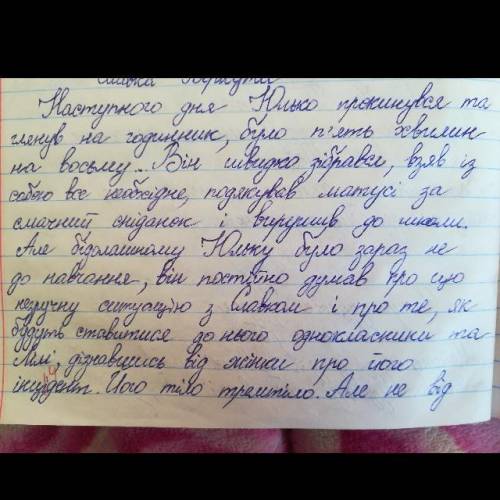 Наступного дня Юлько прокинувся та
глянув на годинник, було п'ять хвилин
на восьму... Він швидко зібрався, взяв із
собою все необхідне, подякував матусі за
смачний сніданок і вирушив до школи.
Але бідолашному Юльку було зараз не
до навчання, він постійно думав про цю
незручну ситуацію з Славком і про те, як
будуть ставитися до нього однокласники та
Лілі, дізнавшись від жінки про його
інцідент. Його тіло тремтіло. Але не від